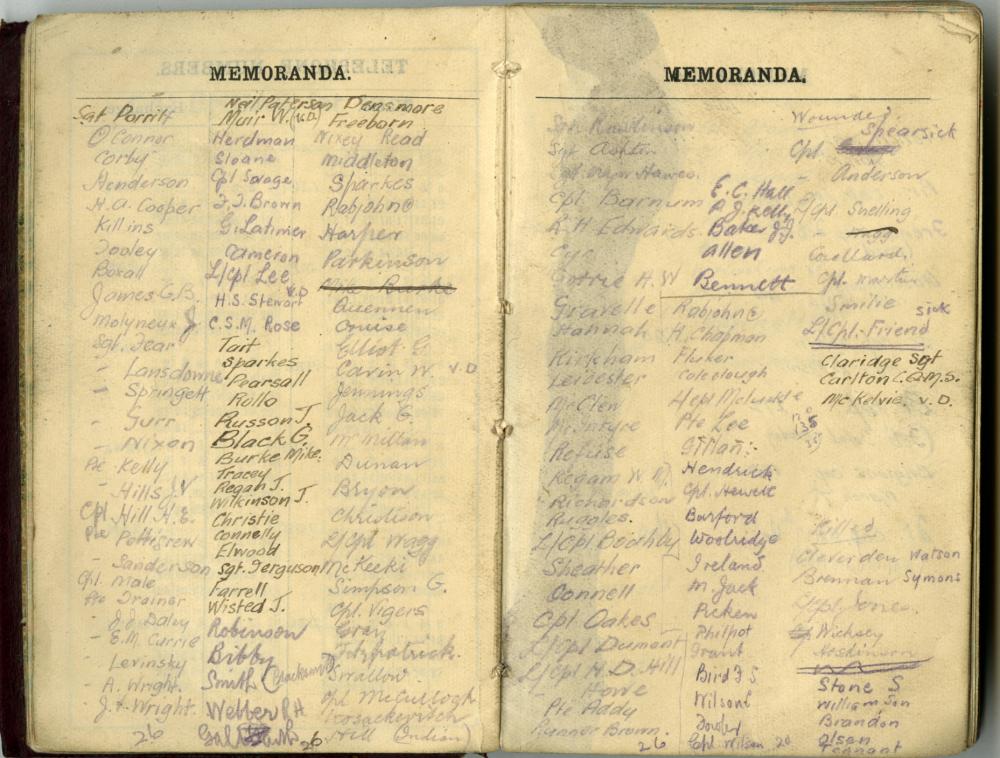 MEMORANDA.
Sgt Porritt
O'Connor
Corby
Henderson
H.A. Cooper
Killins
Tooley
Boxall
James G.B.
Molyneux J
Sgt. Tear
- Lansdowne
- Springett
- Turr
- Nixon
Pte Kelly
- Hills J.V
Cpl. Hill H.E.
Pte Pottigrew
- Sanderson
Cpl. Male
Pte Trainer
- J.J. Daley
- E.M. Currie
- Levinsky
- A. Wright.
- J.F. Wright.
26
Neil Paterson
Muir W. (V.D.)
Herdman
Sloane
Cpl Savage
J.J. Brown
G. Latimer
Cameron
L/Cpl Lee
H.S. Stewart V.D
C.S.M. Rose
Tait
Sparkes
Pearsall
Rollo
Russon J.
Black G.
Burke Mike.
Tracey
Regan J.
Wilkinson J.
Christie
Connelly
Elwood
Sgt. Ferguson
Farrell
Wisted J.
Robinson
Bibby
Smith (Blacksmith)
Webber P.H
26
Densmore
Freeborn
Nixey Read
Middleton
Sparkes
Rabjohn
Harper
Parkinson
Burke
Quennen
Cruise
Elliot G.
Cavin W. V.D
Jennings
Jack G.
McMillan
Dunan
Bryon
Christison
L/Cpl Wagg
McKecki
Simpson G.
Cpl. Vigers
Gray
Fitzpatrick.
Swallow
Cpl McCullogh
Hill (Indian)
MEMORANDA.
Sgt Rawlinson
Sgt Ashton
Hawes.
Cpl. Barnum
R H Edwards
Cyr
Gotrie H.W
Gravelle
Hannah
Kirkham
Leicester
McClen
McIntyre
Refuse
Regan W.
Richardson
Ruggles.
L/Cpl Boothby
Sheather
Connell
Cpl Oakes
L/Cpl Dumont
L/Cpl H.D. Hill
- Howe
Pte Addy
Gunner Brown.
26
E.C. Hall
P.J. Kelly
Baker J.J.
Allen
Bennett
Rabjohn
H. Chapman
Fluker
Coleclough
Pte Lee
Gilman
Hendrick
Cpl. Hewett
Burford
Woolridge
Ireland
M. Jack
Picken
Philpot
Grant
Bird F S
Wilson
Cpl Wilson 20
Wounded
Spearsick
Cpl.
- Anderson
L/Cpl. Snelling
Coullard.
Cpl. Martin
Smilie
sick
L/Cpl. Friend
Claridge Sgt
Carlton C.Q.M.S.
McKelvie. V.D.
Killed
Cleverdon Watson
Brennan Symons
L/Cpl Jones.
Wicksey
Hoskinson
Stone S
Williamson
Brandon
Olsen
Tennant